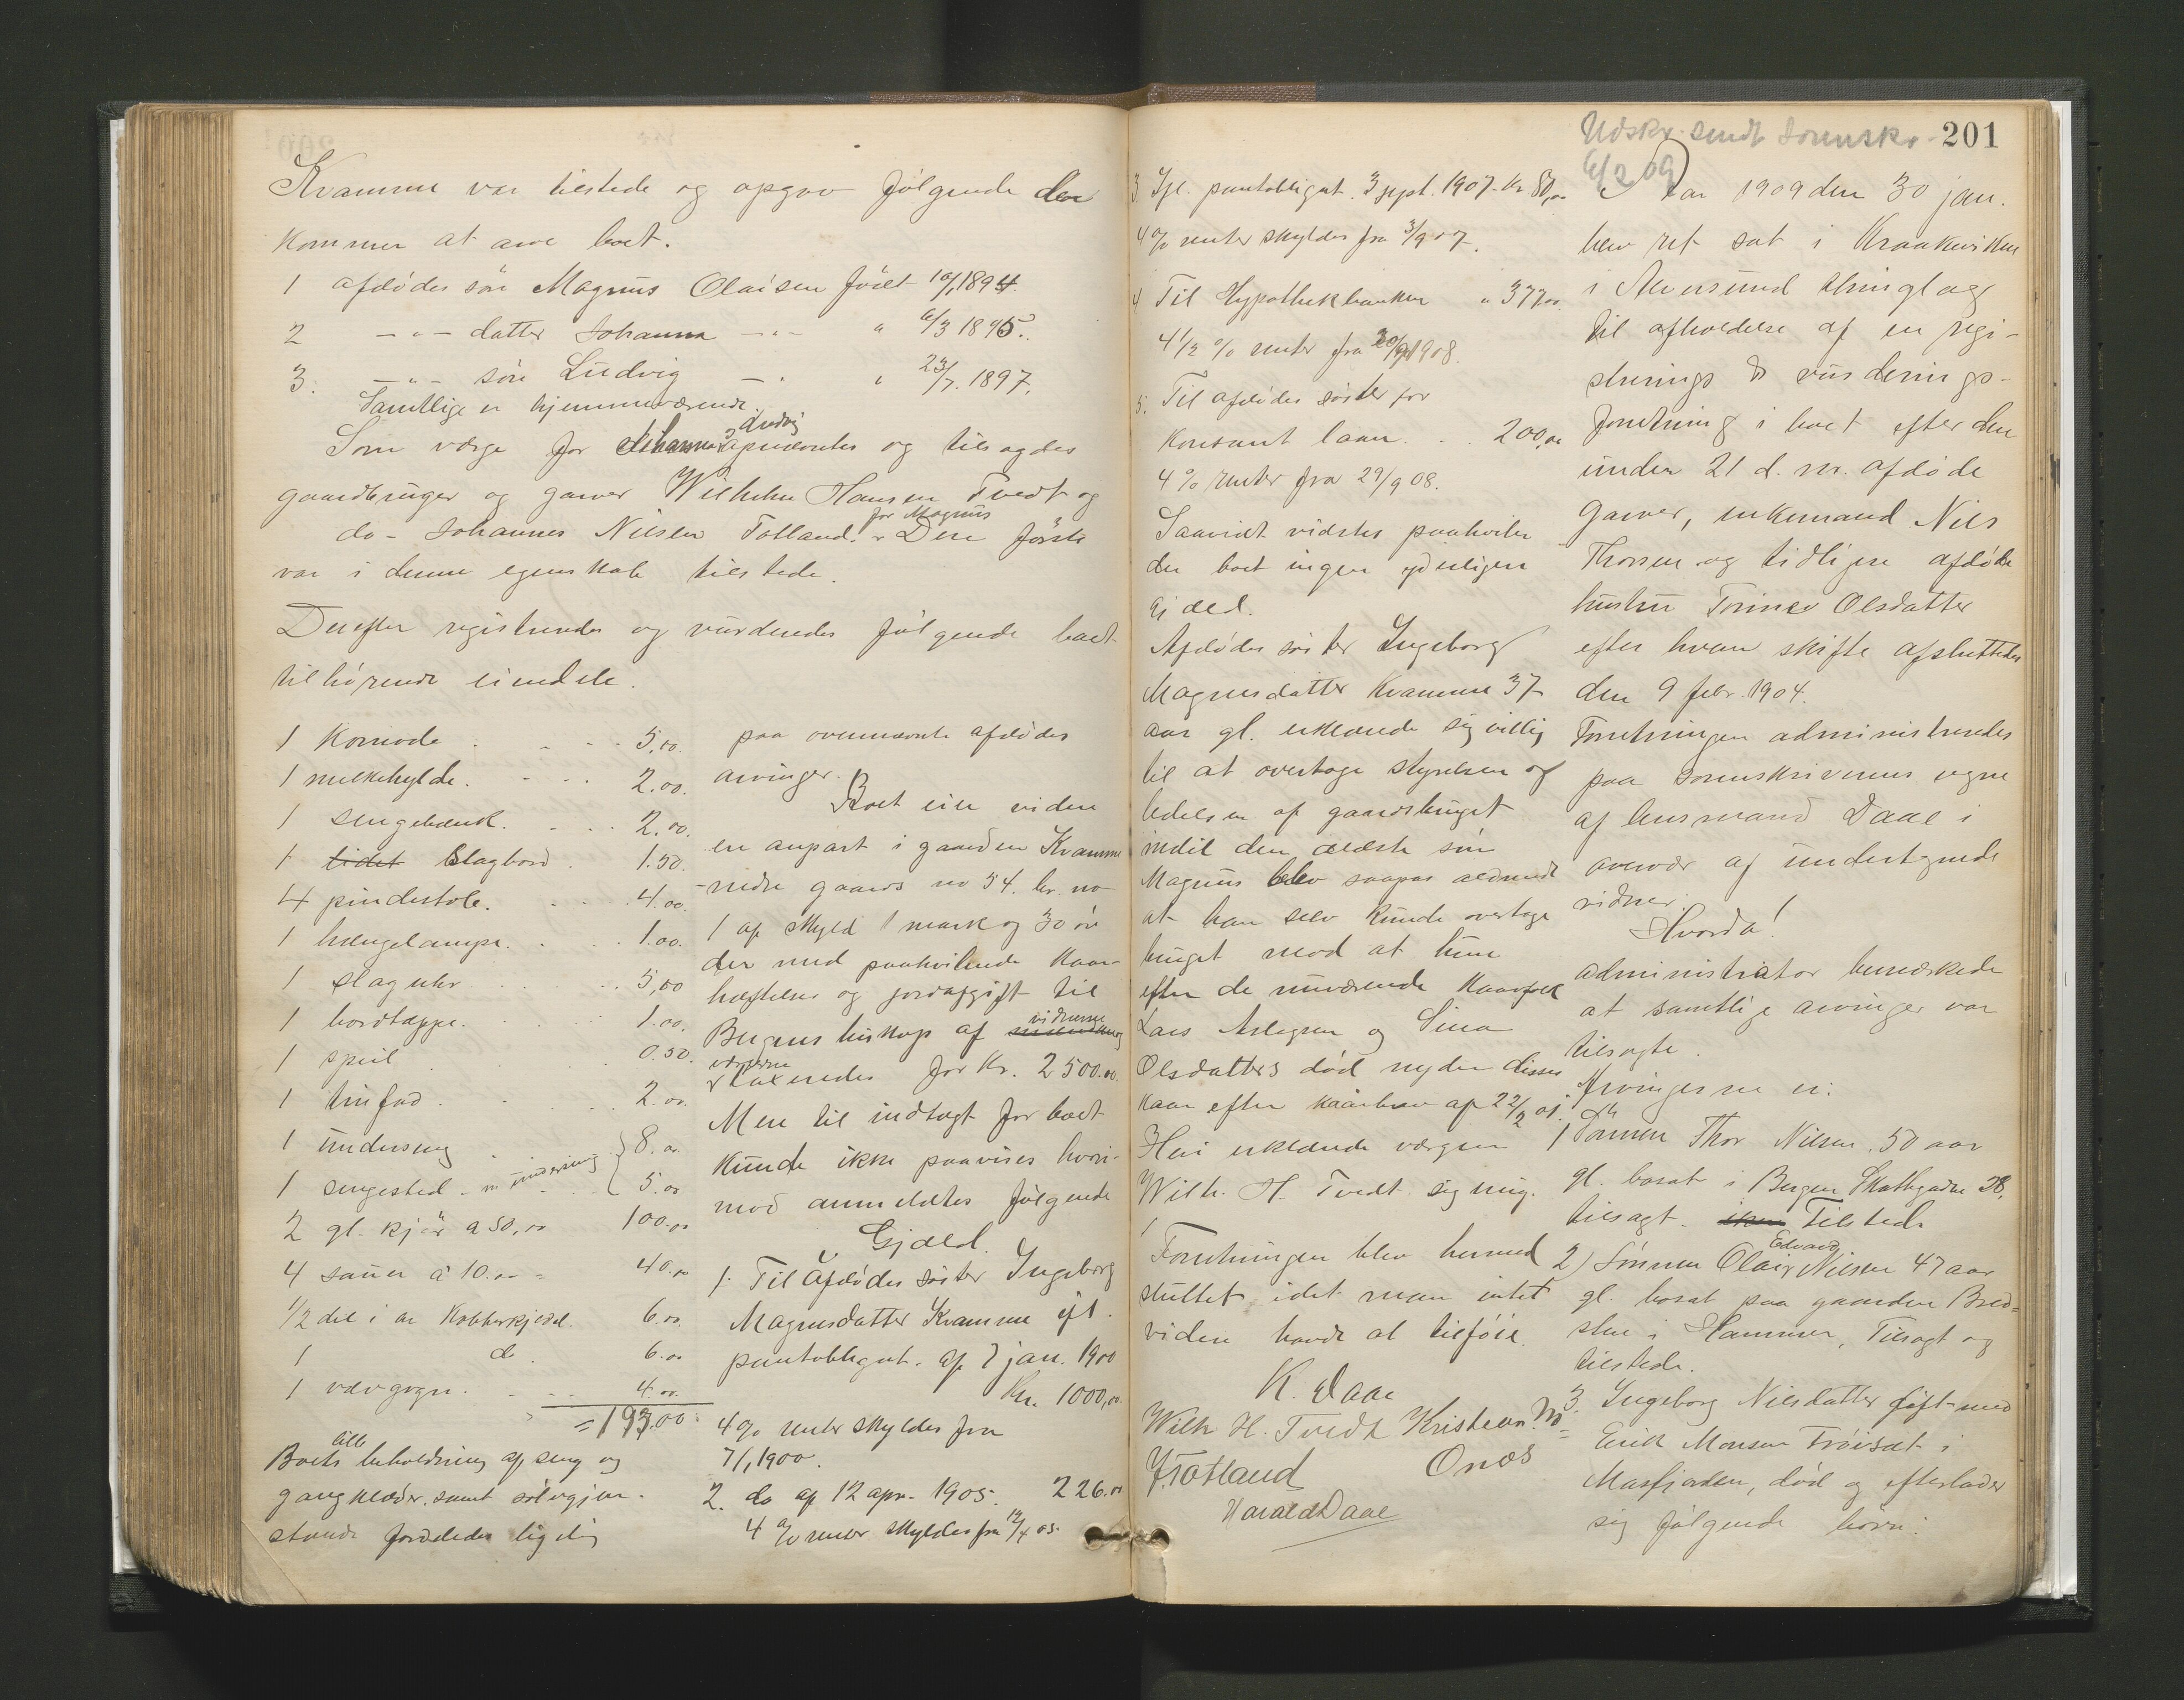 Kvamme var tilstede og opgav følgende der
kommer at arve boet.
1 afdødes søn Magnus Olaisen født 10/1 1894.
2 -"- datter Johanna -"- " 6/3 1895.
3. -"- søn Ludvig -"- " 23/7. 1897.
Samtlige er hjemmeværende.
Som værge for Johanna og Ludvig opnævntes og tilsagdes
gaardbruger og garver Wilhelm Hansen Tvedt og
do - Johannes Nilsen Totland for Magnus. Den første
var i denne egenskab tilstede.
Derefter registreredes og vurderedes følgende boet
tilhørende eiendele.
1 Komode . . . . 5,00.
1 melkehylde. . . . 2.00.
1 sengebænk. . . . 2.00.
1 lidet slagbord . 1.50.
4 pindestole. . . . 4.00.
1 hængelampe. . . 1.00.
1 slaguhr . . . . 5,00
1 bordtæppe. . . . 1.00.
1 speil . . . 0.50.
1 tinfad . . . . 2.00.
1 underseng . . . 8.00
1 sengested - m underseng . . 5.00
2 gl. kjør a 50,00 100.00
4 sauer a 10.00 = 40.00
1/2 del i en Kobberkjedel. 6.00.
1 do. 6.00
1 vævgogn. . . . 4.00.
= 193.00
Boets lille beholdning af seng og
gangklæder, samt sølvgjen-
stande fordeledes ligelig
paa ovennævnte afdødes
arvinger.
Boet eier videre
en anpart i gaarden Kvamme
nedre gaards no 54. br. no
1 af skyld 1 mark og 30 øre
der med paahvilende Kaar-
hæftelser og jordafgift til
Bergens biskop af vidnerne
værgerne
taxeredes for Kr. 2500.00.
Mere til indtægt for boet
kunde ikke paavises hvori-
mod anmeldtes følgende
Gjæld.
1. Til Afdødes søster Ingeborg
Magnusdatter Kvamme ifl.
pantobligat. af 7 jan. 1900
Kr. 1000,00
4% renter skyldes fra
7/1 1900.
2. do af 12 apr. 1905. 226.00
4 % renter skyldes fra 12/4 05.
201
Udskr. sendt Sorenskr.
6/2 09
3. Ifl. pantobligat. 3 sept. 1907. Kr 80,00
4% renter skyldes fra 3/9 07.
4 Til Hypothekbanken " 377.00
4 1/2 % renter fra 20/9 1908.
5. Til afdødes søster for
Kontant laan . . 200,00
4 % renter fra 29/9 08.
Saavidt vidstes paahviler
der boet ingen yderligere
Gjæld.
Afdødes søster Ingeborg
Magnusdatter Kvamme 37
aar gl. erklærede sig villig
til at overtage styrelsen og
ledelsen af gaardsbruget
indtil den ældste søn
Magnus blev saapas aldrende
at han selv kunde overtage
bruget mod at hun
efter de nuværende Kaarfolk
Lars Aslagsen og Sina
Olsdatters død nyder disses
Kaar efter kaarbrev af 22/2 01.
Heri erklærede værgen
Wilh. H. Tvedt sig enig.
Forretningen blev hermed
sluttet idet man intet
videre havde at tilføie.
K. Daae
Wilh H. Tvedt Kristian M.
J. Totland Onæs
Harald Daae
Aar 1909 den 30 jan.
blev ret sat i Kraakeviken
i Alversund thinglag
til afholdelse af en regi-
strerings & vurderings-
forretning i boet efter den
under 21 d. m. afdøde
Garver, enkemand Nils
Thorsen og tidligere afdøde
hustru Olsdatter
efter hvem skifte afsluttedes
den 9 febr. 1904.
Forretningen administreredes
paa sorenskriverens vegne
af lensmand Daae i
overvær af undertegnede
vidner.
Hvorda!
Administrator bemærkede
at samtlige arvinger var
tilsagte.
Arvingerne er:
1 Sønnen Thor Nilsen. 50 aar
gl. bosat i Bergen 28,
tilsagt. ikke Tilstede
2) Sønnen Olai Edvard Nilsen 47 aar
gl. bosat paa gaarden Bred-
sten i Hammer, Tilsagt og
tilstede.
3. Ingeborg Nilsdatter gift med
Erik Monsen Frøiset i
Masfjorden, død og efterlader
sig følgende børn: